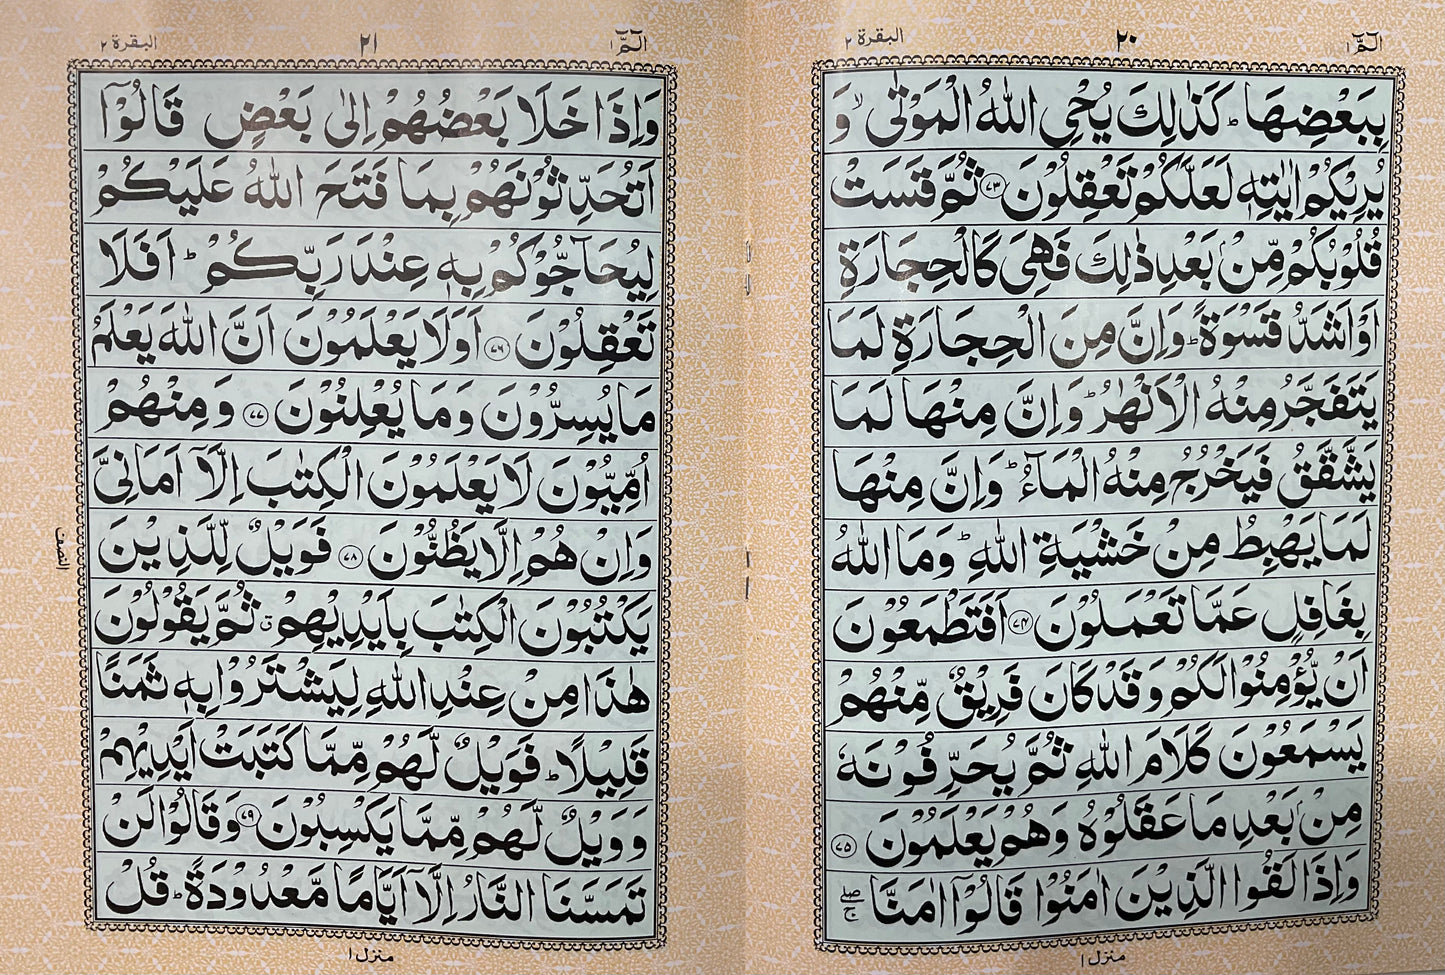 الٓمّٓ ١
٢٠
البقرة ٢
بِبَعْضِهَا ؕ كَذٰلِكَ يُحْىِ اللّٰهُ الْمَوْتٰى ۙ وَ
يُرِيْكُمْ اٰيٰتِهٖ لَعَلَّكُمْ تَعْقِلُوْنَ ﴿۷۳﴾ ثُمَّ قَسَتْ
قُلُوْبُكُمْ مِّنْۢ بَعْدِ ذٰلِكَ فَهِىَ كَالْحِجَارَةِ
اَوْ اَشَدُّ قَسْوَةً ؕ وَاِنَّ مِنَ الْحِجَارَةِ لَمَا
يَتَفَجَّرُ مِنْهُ الْاَنْهٰرُ ؕ وَاِنَّ مِنْهَا لَمَا
يَشَّقَّقُ فَيَخْرُجُ مِنْهُ الْمَآءُ ؕ وَاِنَّ مِنْهَا
لَمَا يَهْبِطُ مِنْ خَشْيَةِ اللّٰهِ ؕ وَمَا اللّٰهُ
بِغَافِلٍ عَمَّا تَعْمَلُوْنَ ﴿۷۴﴾ اَفَتَطْمَعُوْنَ
اَنْ يُّؤْمِنُوْا لَكُمْ وَقَدْ كَانَ فَرِيْقٌ مِّنْهُمْ
يَسْمَعُوْنَ كَلَامَ اللّٰهِ ثُمَّ يُحَرِّفُوْنَهٗ
مِنْۢ بَعْدِ مَا عَقَلُوْهُ وَهُمْ يَعْلَمُوْنَ ﴿۷۵﴾
وَاِذَا لَقُوا الَّذِيْنَ اٰمَنُوْا قَالُوْٓا اٰمَنَّا ۖۚ
منزل ١
الٓمّٓ ١
٢١
البقرة ٢
وَاِذَا خَلَا بَعْضُهُمْ اِلٰى بَعْضٍ قَالُوْٓا
اَتُحَدِّثُوْنَهُمْ بِمَا فَتَحَ اللّٰهُ عَلَيْكُمْ
لِيُحَآجُّوْكُمْ بِهٖ عِنْدَ رَبِّكُمْ ؕ اَفَلَا
تَعْقِلُوْنَ ﴿۷۶﴾ اَوَلَا يَعْلَمُوْنَ اَنَّ اللّٰهَ يَعْلَمُ
مَا يُسِرُّوْنَ وَمَا يُعْلِنُوْنَ ﴿۷۷﴾ وَمِنْهُمْ
اُمِّيُّوْنَ لَا يَعْلَمُوْنَ الْكِتٰبَ اِلَّآ اَمَانِىَّ
وَاِنْ هُمْ اِلَّا يَظُنُّوْنَ ﴿۷۸﴾ فَوَيْلٌ لِّلَّذِيْنَ
النصف
يَكْتُبُوْنَ الْكِتٰبَ بِاَيْدِيْهِمْ ق ثُمَّ يَقُوْلُوْنَ
هٰذَا مِنْ عِنْدِ اللّٰهِ لِيَشْتَرُوْا بِهٖ ثَمَنًا
قَلِيْلًا ؕ فَوَيْلٌ لَّهُمْ مِّمَّا كَتَبَتْ اَيْدِيْهِمْ
وَوَيْلٌ لَّهُمْ مِّمَّا يَكْسِبُوْنَ ﴿۷۹﴾ وَقَالُوْا لَنْ
تَمَسَّنَا النَّارُ اِلَّآ اَيَّامًا مَّعْدُوْدَةً ؕ قُلْ
منزل ١